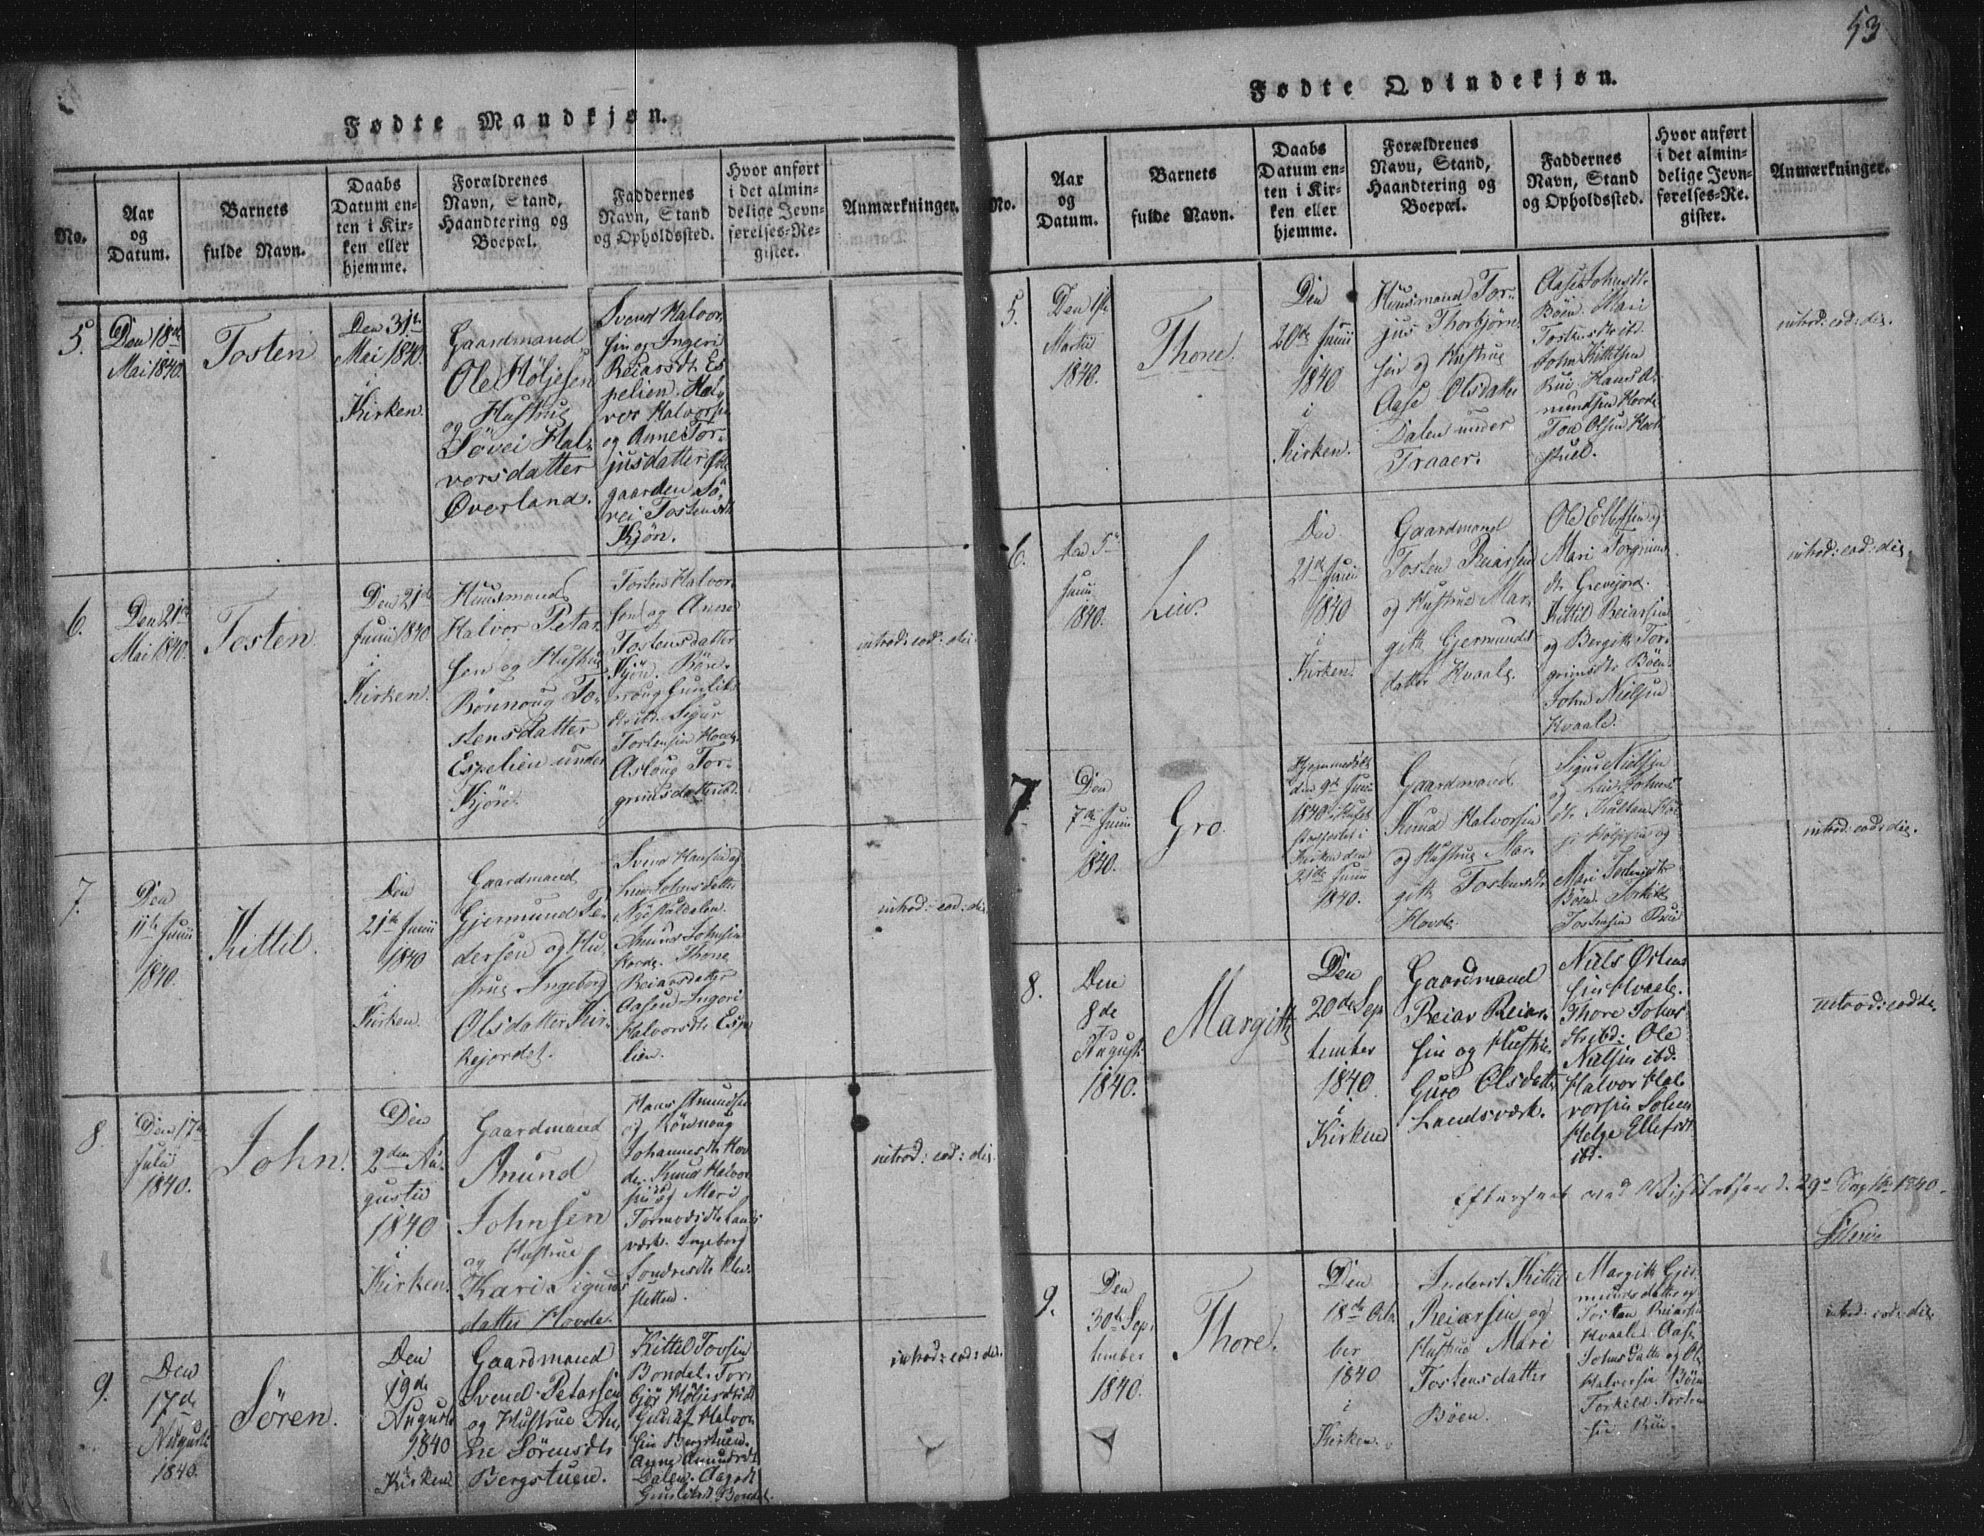 53
Fødte Mandkjøn.
No.
Aar
og
Datum.
Barnets
fulde Navn.
Daabs
Datum en-
ten i Kir-
ken eller
hjemme.
Forældrenes
Navn, Stand,
Haandtering og
Boepæl.
Faddernes
Navn, Stand
og Opholdssted.
Hvor anført
i det almin-
delige Jevn-
førelses-Re-
gister.
Anmærkninger.
5.
Den 18de
Mai 1840.
Tosten
Den 31te
Mai 1840.
i
Kirken.
Gaardmand
Ole Høljesen
og Hustrue
Søvei Hal-
vorsdatter
Overland.
Svend Halvor-
sen og Ingeri
Reiarsdtr Es-
pelien. Hal-
vor Halvorsen
og Anne Tor-
jusdatter
gaarden Sö-
vei Tostensdtr
Kjøn.
6.
Den 21de
Mai 1840.
Tosten
Den 21de
Junii 1840
i
Kirken.
Huusmand
Halvor Petar-
sen og Hustrue
Rønnoug To-
stensdatter
Espelien under
Kjøn.
Tosten Halvor-
sen og Anne
Tostensdatter
Kjøn. Røn-
noug Gunliks-
dtr ibd. Sigur
Tostensen Hovde.
Asloug Tor-
grimsdatter ibd.
introd: eod: die.
7.
Den
11te Junii
1840.
Kittil.
Den
21de Junii
1840
i
Kirken.
Gaardmand
Gjermund Pe-
dersen og Hu-
strue Ingeborg
Olsdatter Kir-
kejordet.
Svend Hansen og
Liv Johnsdatter
Nystuldalen.
Anund Johnsen
Hovde. Thone
Reiarsdatter
Aasen. Ingeri
Halvorsdtr Espe-
lien.
introd: eod: die
8.
Den 17de
Julii
1840.
John.
Den
2den Au-
gustii
1840
i
Kirken.
Gaardmand
Anund
Johnsen
og Hustrue
Kari Sigurds-
datter Hovde.
Hans Amundsen
og Rønnoug
Johannesdtr Hov-
de. Knud Halvor-
sen og Mari
Tormodsdtr Lands-
værk. Ingeborg
Sondresdtr Klev-
stetten.
introd: eod: die.
9.
Den
17de
Augusti
1840.
Søren.
Den
19de
Augusti
1840
i
Kirken
Gaardmand
Svend Petarsen
og Hustrue An-
ne Sørensdtr
Bergstuen.
Kittel Tovsen
Bondal. Tor-
bjør Høljesdtr
Gunluf Halvor-
sen Bergstuen.
Anne Amundsdt
Dalen. Aagodt
Gunliksdt Bondal.
introd: eod: die.
Fødte Qvindekjøn.
No.
Aar
og
Datum.
Barnets
fulde Navn.
Daabs
Datum en-
ten i Kir-
ken eller
hjemme.
Forældrenes
Navn, Stand,
Haandtering og
Boepæl.
Faddernes
Navn, Stand
og Opholdssted.
Hvor anført
i det almin-
delige Jevn-
førelses-Re-
gister.
Anmærkninger.
5.
Den 1ste
Martii
1840.
Thone.
Den
20de Junii
1840
i
Kirken.
Huusmand Tor-
jus Thorbjørn-
sen og Hustrue
Aase Olsdatter
Dalen under
Traaer.
Aase Johnsdtr
Böen. Mari
Tostensdtr ibd.
John Kittilsen
Rui. Hans A-
mundsen Hovde
Tov Olsen
introd: eod: die.
6.
Den 5te
Junii
1840.
Liv.
Den
21de Junii
1840
i
Kirken.
Gaardmand
Tosten Reiarsen
og Hustrue Mar-
gith Gjermunds-
datter Hvaale.
Ole Ellefsen og
Mari Torgrims-
dtr Grevjord.
Kittil Reiarsen
og Bergith Tor-
grimsdtr Böen.
John Nielsen
Hvaale.
introd: eod: die.
7
Den
7de Junii
1840.
Gro.
Hjemmedöbt
den 9de Junii
1840.
Kirken den
21de Junii
1840.
Gaardmand
Knud Halvorsen
og Hustrue Mar-
gith Tostensdtr
Hovde.
Sigur Nielsen
og Liv Johns-
dtr
Høljesen og
Mari Tostensdtr
Böen. Torkild
Tostensen Rui
introd: eod: die.
8.
Den
8de
August
1840.
Margith
Den
20de Sep-
tember
1840.
i
Kirken
Gaardmand
Reiar Reiar-
sen og Hustrue
Guro Olsdatter
Landsværk.
Niels Østens-
sen Hvaale.
Thore Johns-
dtr ibd: Ole
Nielsen ibd.
Halvor Hal-
vorsen Solem
Helge Ellefsdt
ibd.
introd: eod: die.
Efterseet ved Visitatsen d. 29de Septbr 1840.
9.
Den
30te Sep-
tember
1840.
Thore.
Den
18de Octo-
ber
1840
i
Kirken.
Inderst Kittil
Reiarsen og
Hustrue Mari
Tostensdatter
Böen.
Margith Gjer-
mundsdatter og
Tosten Reiarsen
Hvaale. Aase
Johnsdatter og Ole
Halvorsen Böen
Torkild Tosten-
sen Rui.
introd: eod: die.